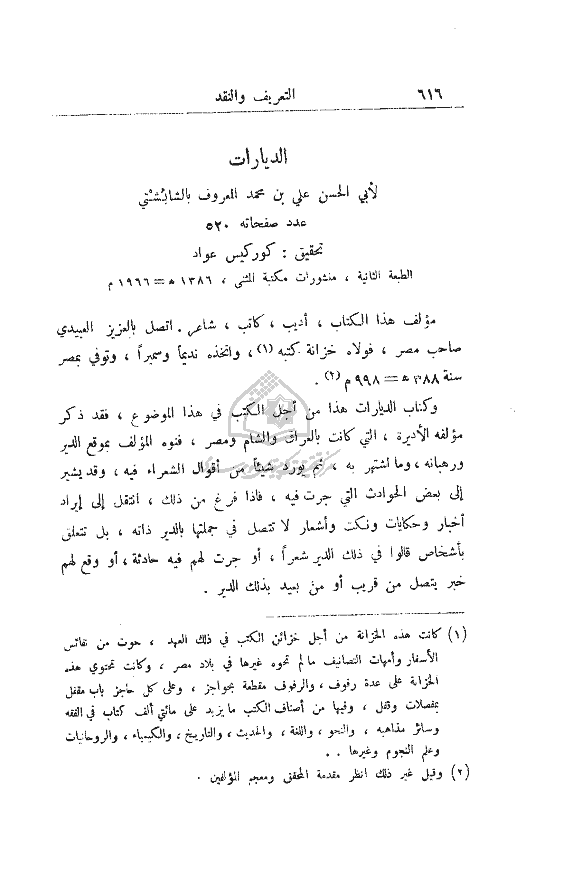 ٦١٦ التعريف والنقد
الديارات
لأبي الحسن علي بن محمد المعروف بالشابُشْتي
عدد صفحاته ٥٢٠
تحقيق : كوركيس عواد
الطبعة الثانية ، منشورات مكتبة المثنى ، ١٣٨٦ ه = ١٩٦٦ م
مؤلف هذا الكتاب ، أديب ، كاتب ، شاعر . اتصل بالعزيز العبيدي
صاحب مصر ، فولاه خزانة كتبه (١) ، واتخذه نديماً وسميراً ، وتوفي بمصر
سنة ٣٨٨ ه = ٩٩٨ م (٢) .
وكتاب الديارات هذا من أجل الكتب في هذا الموضوع ، فقد ذكر
مؤلفه الأديرة ، التي كانت بالعراق والشام ومصر ، فنوه المؤلف بموقع الدير
ورهبانه ، وما اشتهر به ، ثم يورد شيئاً من أقوال الشعراء فيه ، وقد يشير
إلى بعض الحوادث التي جرت فيه ، فاذا فرغ من ذلك ، انتقل إلى إيراد
أخبار وحكايات ونكت وأشعار لا تتصل في جملتها بالدير ذاته ، بل تتعلق
بأشخاص قالوا في ذلك الدير شعراً ، أو جرت لهم فيه حادثة ، أو وقع لهم
خبر يتصل من قريب أو من بعيد بذلك الدير .
(١) كانت هذه الخزانة من أجل خزائن الكتب في ذلك العهد ، حوت من نفائس
الأسفار وأمهات التصانيف ما لم تحوه غيرها في بلاد مصر ، وكانت تحتوي هذه
الخزانة على عدة رفوف ، والرفوف مقطعة بحواجز ، وعلى كل حاجز باب مقفل
بمفصلات وقفل ، وفيها من أصناف الكتب ما يزيد على مائتي ألف كتاب في الفقه
وسائر مذاهبه ، والنحو ، واللغة ، والحديث ، والتاريخ ، والكيمياء ، والروحانيات
وعلم النجوم وغيرها . .
(٢) وقيل غير ذلك انظر مقدمة المحقق ومعجم المؤلفين .